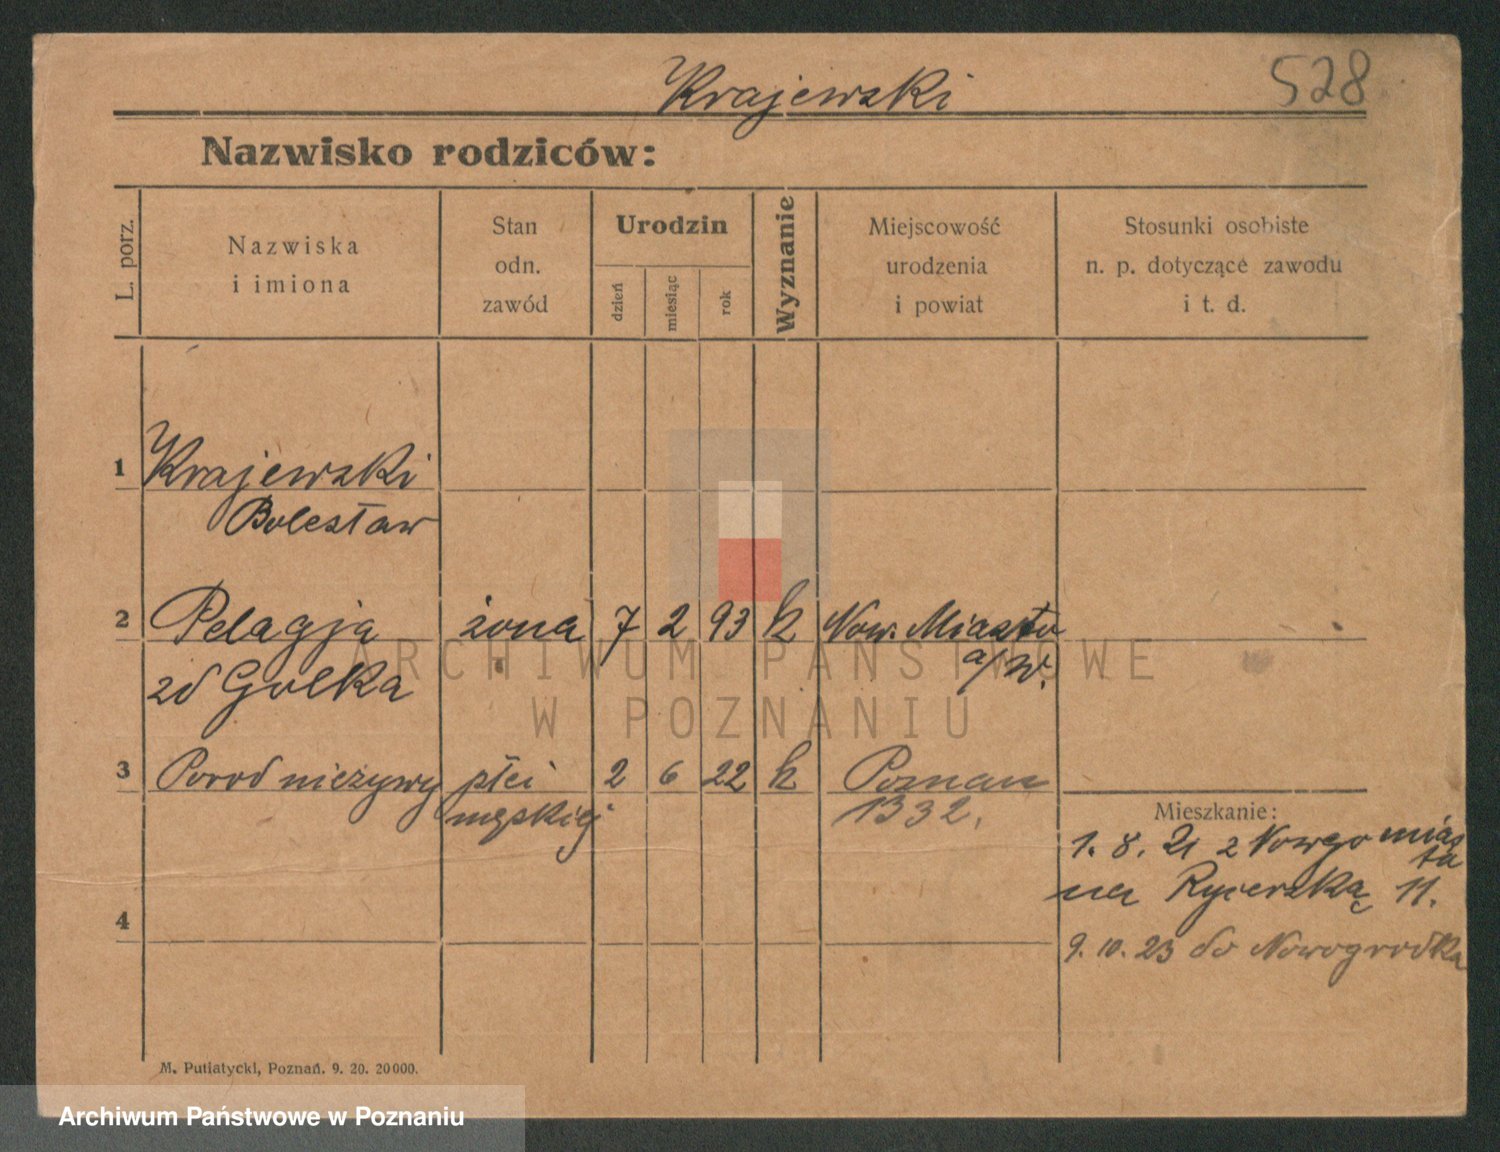 Krajewski 528
Nazwisko rodziców:
L. porz.
Nazwiska
i imiona
Stan
odn.
zawód
Urodzin
dzień
miesiąc
rok
Wyznanie
Miejscowość
urodzenia
i powiat
Stosunki osobiste
n. p. dotyczące zawodu
i t. d.
1 Krajewski
Bolesław
2 Pelagja żona 7 2 93 k Now. Miasto
a/W.
zd Golka
ARCHIWUM PAŃSTWOWE
W POZNANIU
3 Poród nieżywy płci 2 6 22 k Poznań
męskiej 1332.
Mieszkanie:
1. 8. 21 z Nowego mias
ta
na Rycerską 11.
4
9. 10. 23 do Nowogrodka
M. Putiatycki, Poznań. 9. 20. 20000.
Archiwum Państwowe w Poznaniu